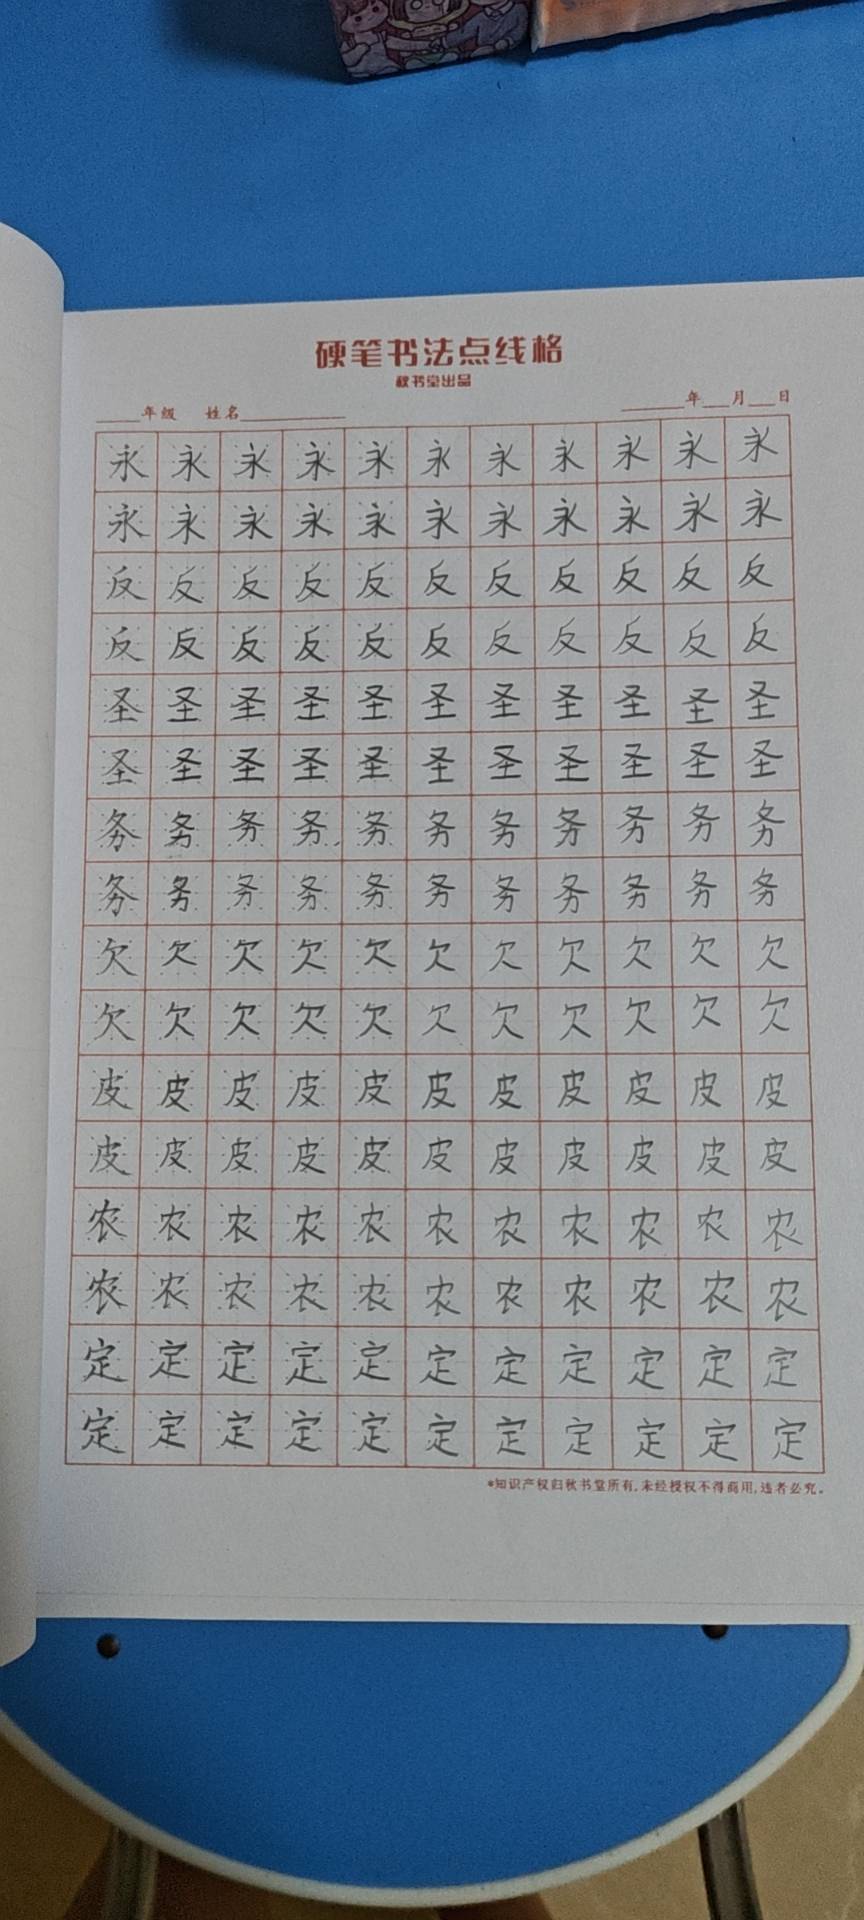 硬笔书法点线格
秋书堂出品
____年级 姓名________ ______年___月___日
永永永永永永永永永永永
永永永永永永永永永永永
反反反反反反反反反反反
反反反反反反反反反反反
圣圣圣圣圣圣圣圣圣圣圣
圣圣圣圣圣圣圣圣圣圣圣
务务务务务务务务务务务
务务务务务务务务务务务
欠欠欠欠欠欠欠欠欠欠欠
欠欠欠欠欠欠欠欠欠欠欠
皮皮皮皮皮皮皮皮皮皮皮
皮皮皮皮皮皮皮皮皮皮皮
农农农农农农农农农农农
农农农农农农农农农农农
定定定定定定定定定定定
定定定定定定定定定定定
*知识产权归秋书堂所有,未经授权不得商用,违者必究。